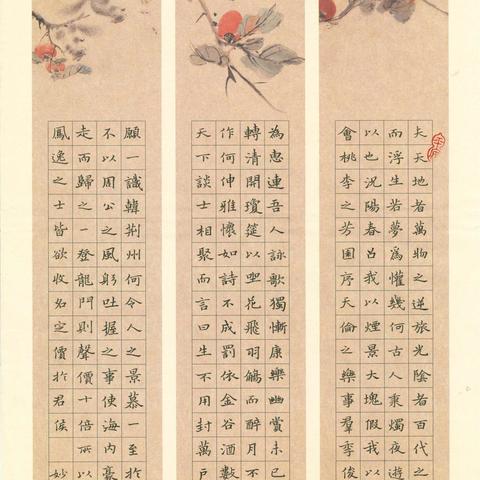 夫天地者萬物之逆旅光陰者百代之
而浮生若夢爲懽幾何古人秉燭夜遊
以也況陽春召我以煙景大塊假我以
會桃李之芳園序天倫之樂事羣季俊
為惠連吾人詠歌獨慚康樂幽賞未已
轉清開瓊筵以坐花飛羽觴而醉月不
作何伸雅懷如詩不成罰依金谷酒數
天下談士相聚而言曰生不用封萬戶
願一識韓荊州何令人之景慕一至於
不以周公之風躬吐握之事使海內豪
走而歸之一登龍門則聲價十倍所以
鳳逸之士皆欲收名定價於君侯 妙